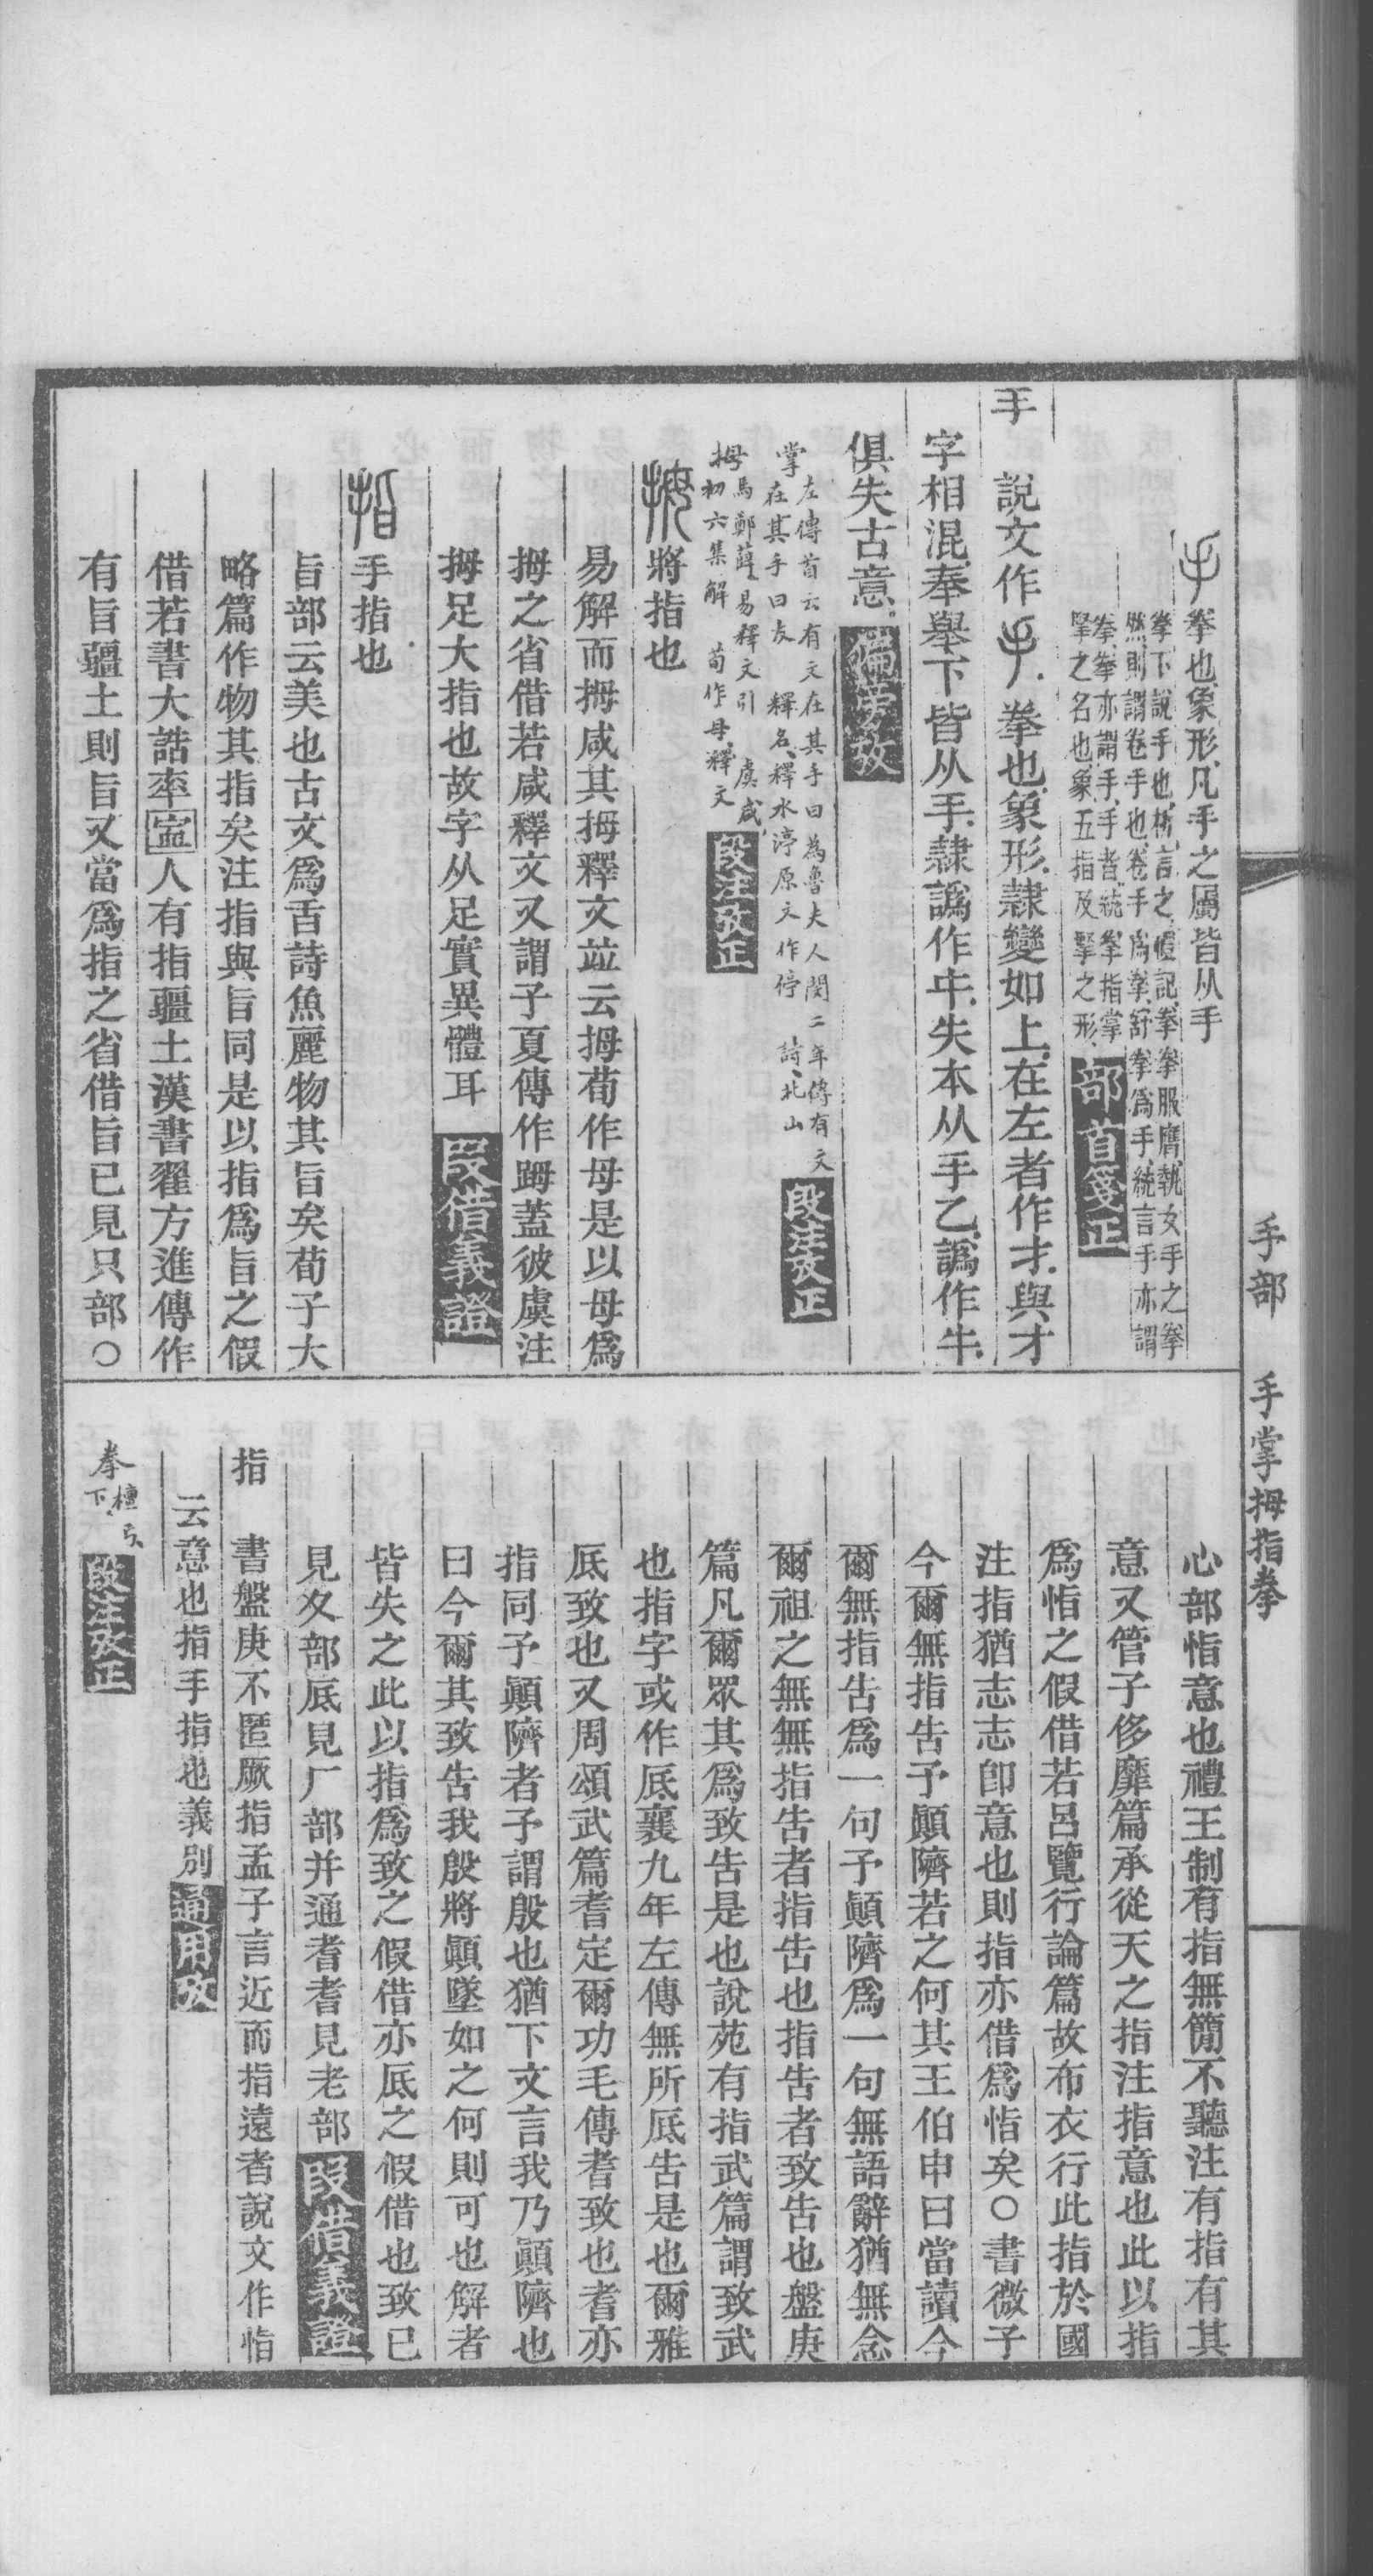 手拳也象形凡手之屬皆从手
拳下說手也析言之禮記拳拳服膺執女手之拳
然則謂卷手也卷手爲拳舒拳爲手統言手亦謂
拳拳亦謂手手者統拳指掌
掔之名也象五指及掔之形 部首箋正
手 說文作手拳也象形隸變如上在左者作扌與才
字相混奉舉下皆从手隸譌作㐄失本从手乙譌作牛
俱失古意 偏旁攷
掌 左傳首云有文在其手曰為魯夫人閔二年傳有文
在其手曰友 釋名釋水渟原文作停 詩北山 段注攷正
拇 馬鄭薛易釋文引 虞咸
初六集解 荀作母釋文 段注攷正
拇 將指也
易解而拇咸其拇釋文竝云拇荀作母是以母爲
拇之省借若咸釋文又謂子夏傳作䟦蓋彼虞注
拇足大指也故字从足實異體耳 叚借義證
指 手指也
旨部云美也古文爲舌詩魚麗物其旨矣荀子大
略篇作物其指矣注指與旨同是以指爲旨之假
借若書大誥率寍人有指疆土漢書翟方進傳作
有旨疆土則旨又當爲指之省借旨已見只部○
心部恉意也禮王制有指無簡不聽注有指有其
意又管子侈靡篇承從天之指注指意也此以指
爲恉之假借若呂覽行論篇故布衣行此指於國
注指猶志志卽意也則指亦借爲恉矣○書微子
今爾無指告予顚隮若之何其王伯申曰當讀今
爾無指告爲一句予顚隮爲一句無語辭猶無念
爾祖之無無指告者指告也指告者致告也盤庚
篇凡爾眾其爲致告是也說苑有指武篇謂致武
也指字或作厎襄九年左傳無所厎告是也爾雅
厎致也又周頌武篇耆定爾功毛傳耆致也耆亦
指同予顚隮者予謂殷也猶下文言我乃顚隮也
曰今爾其致告我殷將顚墜如之何則可也解者
皆失之此以指爲致之假借亦厎之假借也致已
見夊部厎見厂部并通耆耆見老部 叚借義證
指 書盤庚不匿厥指孟子言近而指遠者說文作恉
云意也指手指也義別 通用攷
拳 檀弓
下 段注攷正
手部 手掌拇指拳